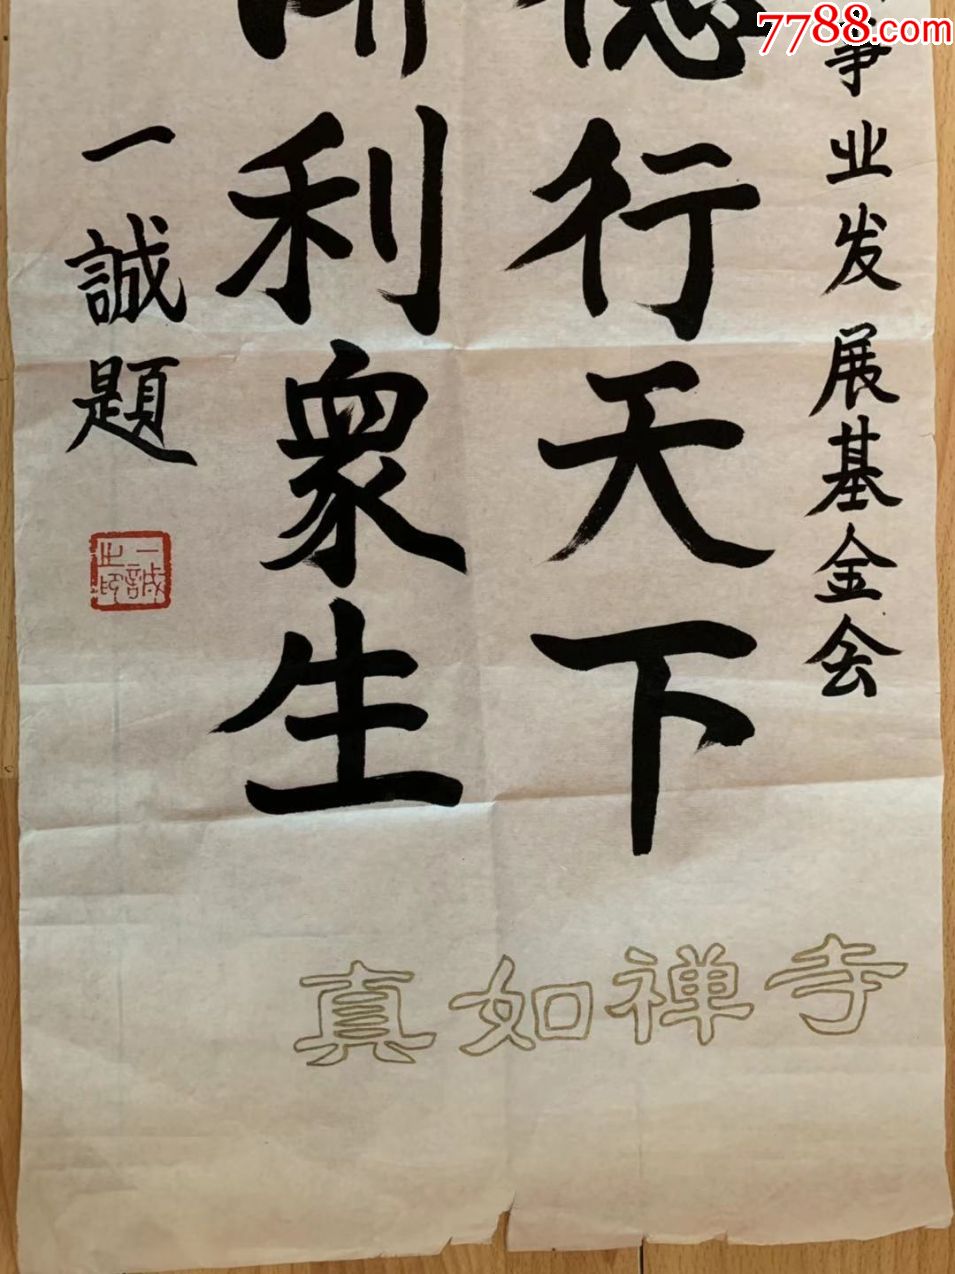 事业发展基金会
德行天下
利眾生
一誠題
一誠之印
真如禅寺
7788.com